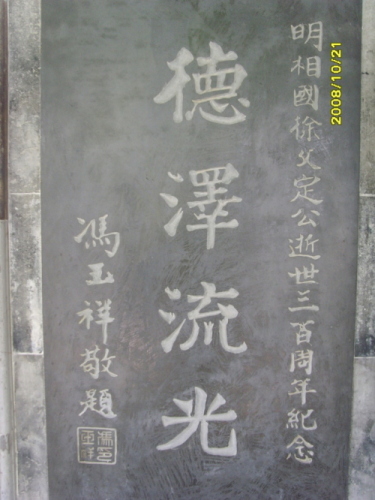 明相國徐文定公逝世三百周年紀念
德澤流光
馮玉祥敬題
2008/10/21